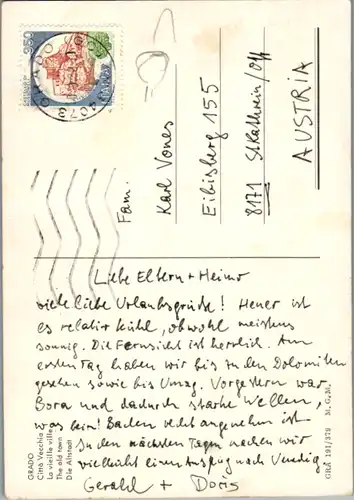 350
34073 GRADO
ITALIA
Fam.
Karl Vones
Eibisberg 155
8171 St. Kathrein/Off
AUSTRIA
Liebe Eltern + Heimo
viele liebe Urlaubsgrüße! Heuer ist
es relativ kühl, obwohl meistens
sonnig. Die Fernsicht ist herrlich. Am
ersten Tag haben wir bis zu den Dolomiten
gesehen sowie bis Umag. Vorgestern war
Bora und dadurch starke Wellen,
was beim Baden recht angenehm ist
In den nächsten Tagen machen wir
vielleicht einen Ausflug nach Venedig
Gerald + Doris
GRADO
Città Vecchia
La vieille ville
The old town
Die Altstadt
GRA 191/378 M. G. M.